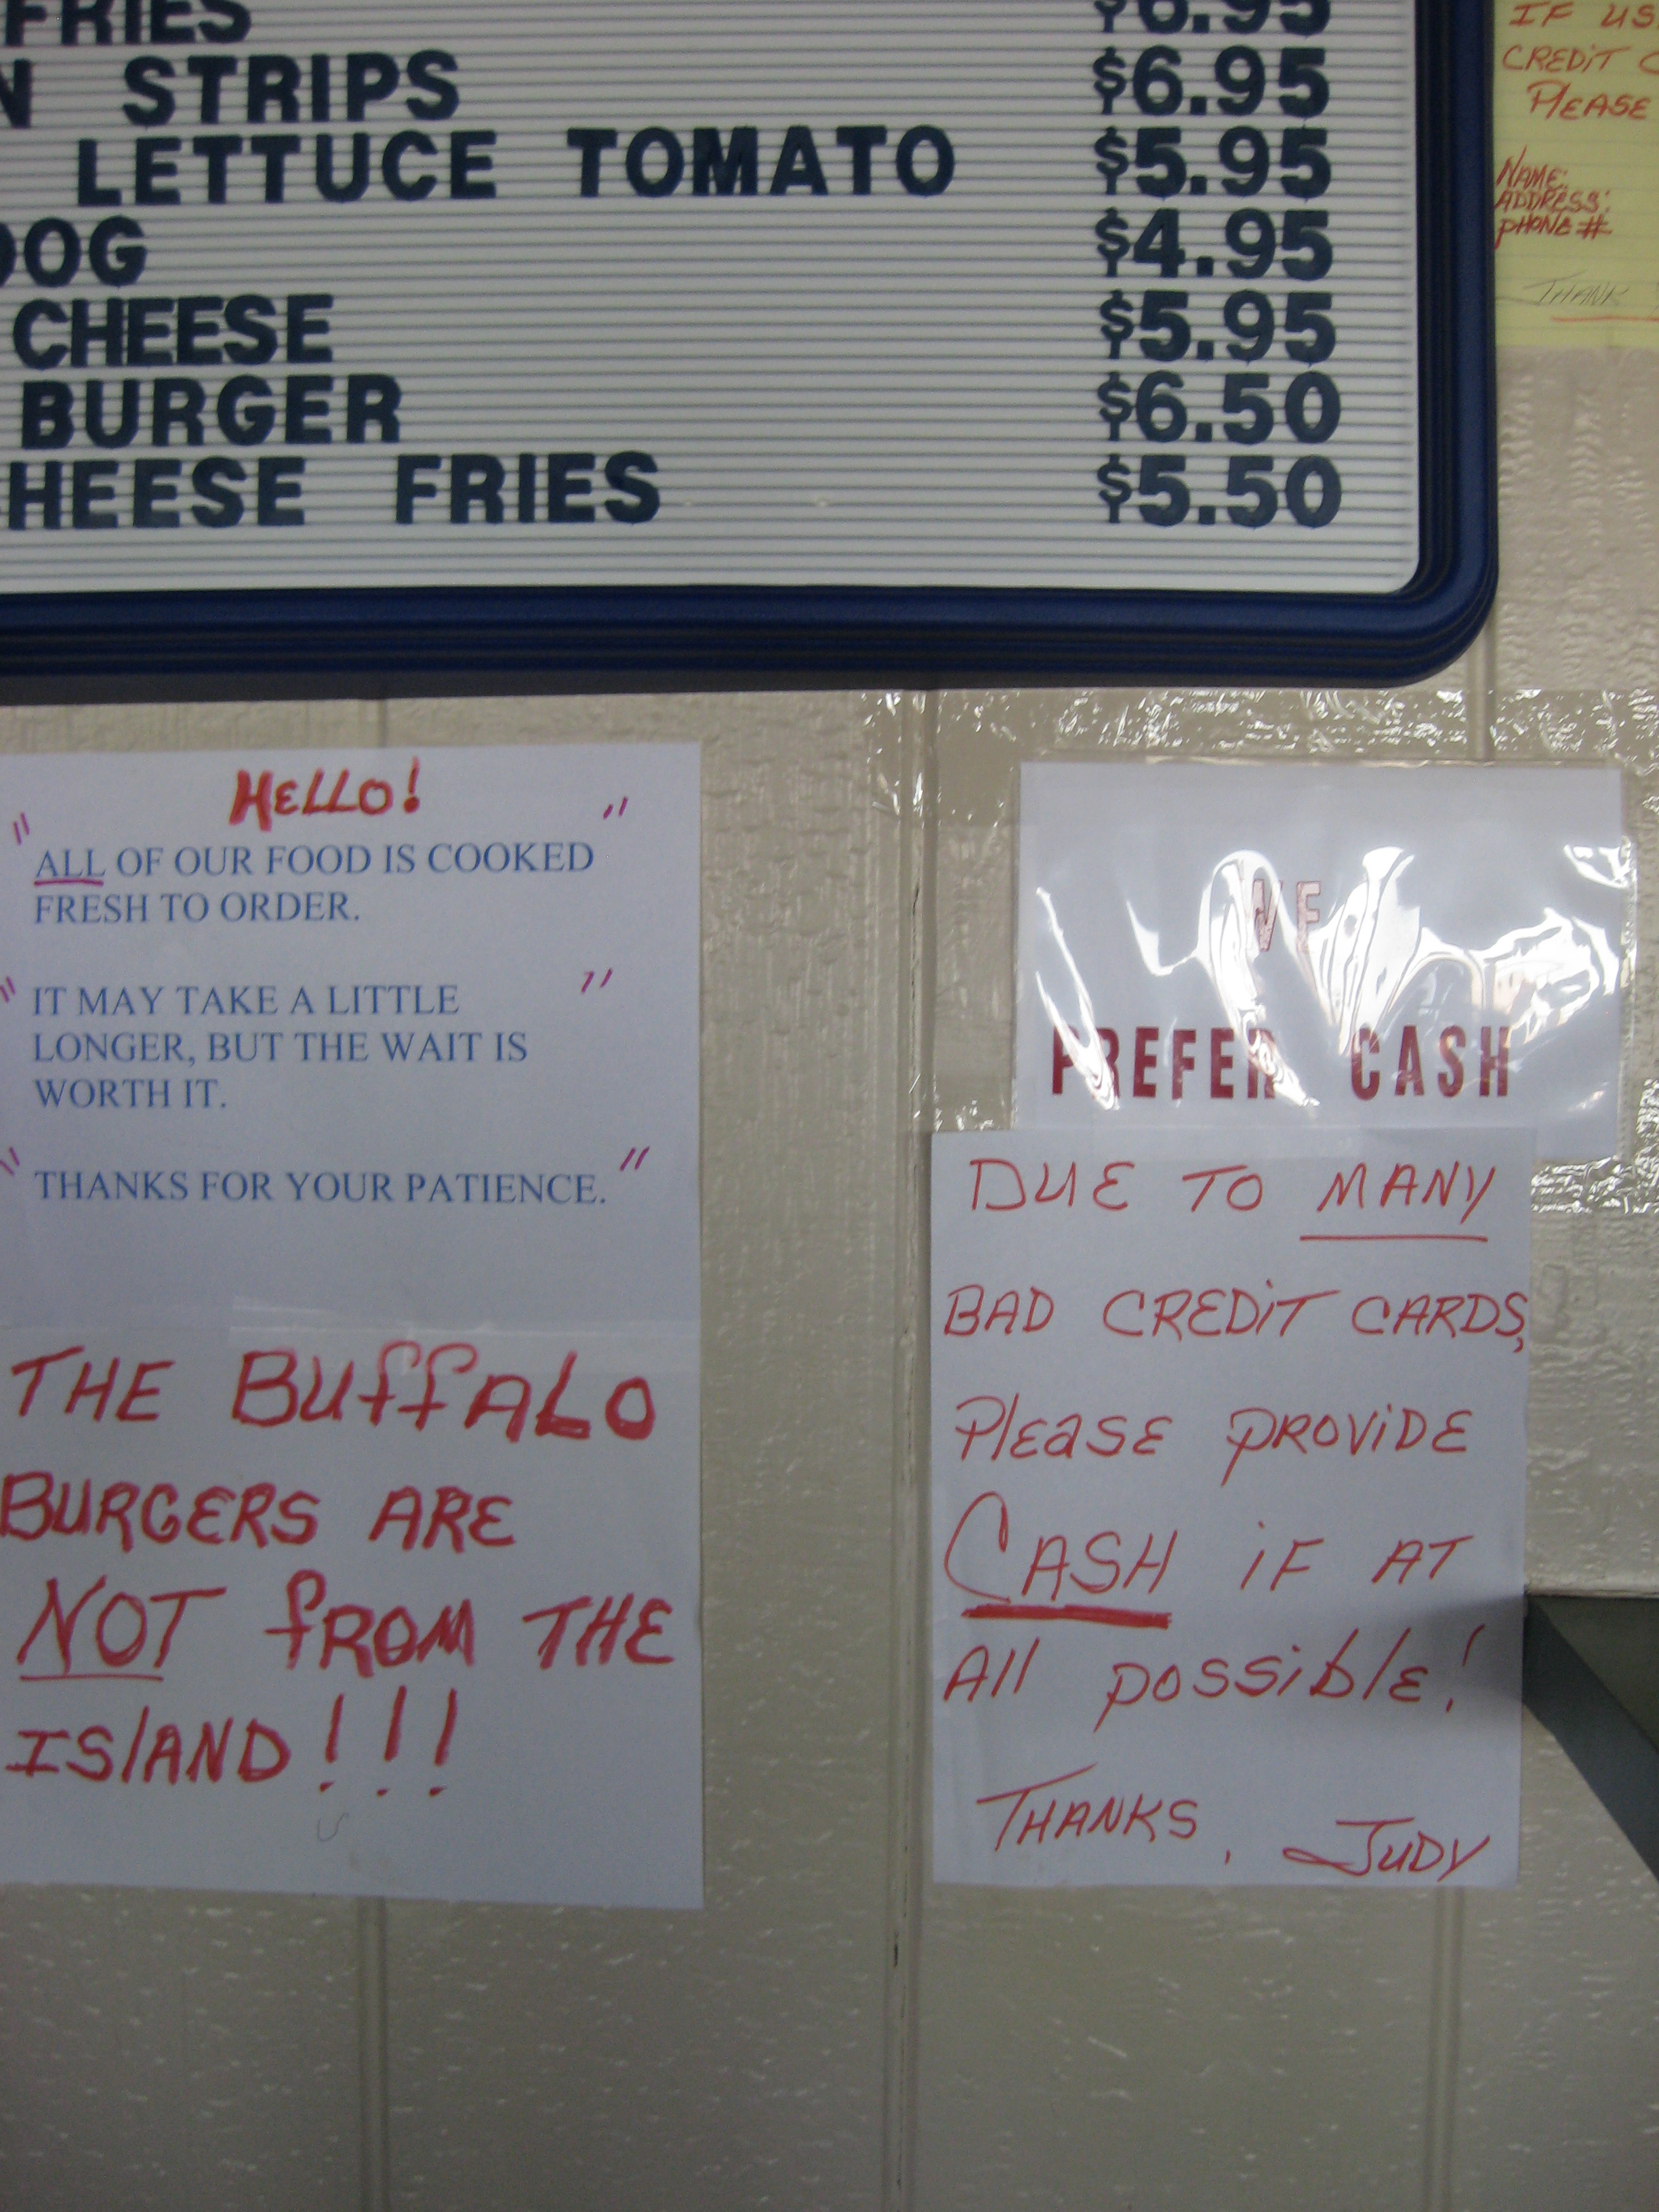 FRIES $6.95
STRIPS $6.95
LETTUCE TOMATO $5.95
DOG $4.95
CHEESE $5.95
BURGER $6.50
CHEESE FRIES $5.50
IF
CREDIT
PLEASE
NAME:
ADDRESS:
PHONE #
THANK
HELLO!
"ALL OF OUR FOOD IS COOKED"
FRESH TO ORDER.
"IT MAY TAKE A LITTLE"
LONGER, BUT THE WAIT IS
WORTH IT.
"THANKS FOR YOUR PATIENCE."
THE BUffALO
BURGERS ARE
NOT fROM THE
ISlAND!!!
WE
PREFER CASH
DUE TO MANY
BAD CREDiT CARDS,
PlEaSE PROViDE
CASH iF AT
All possiblE!
THANKS, JUDY